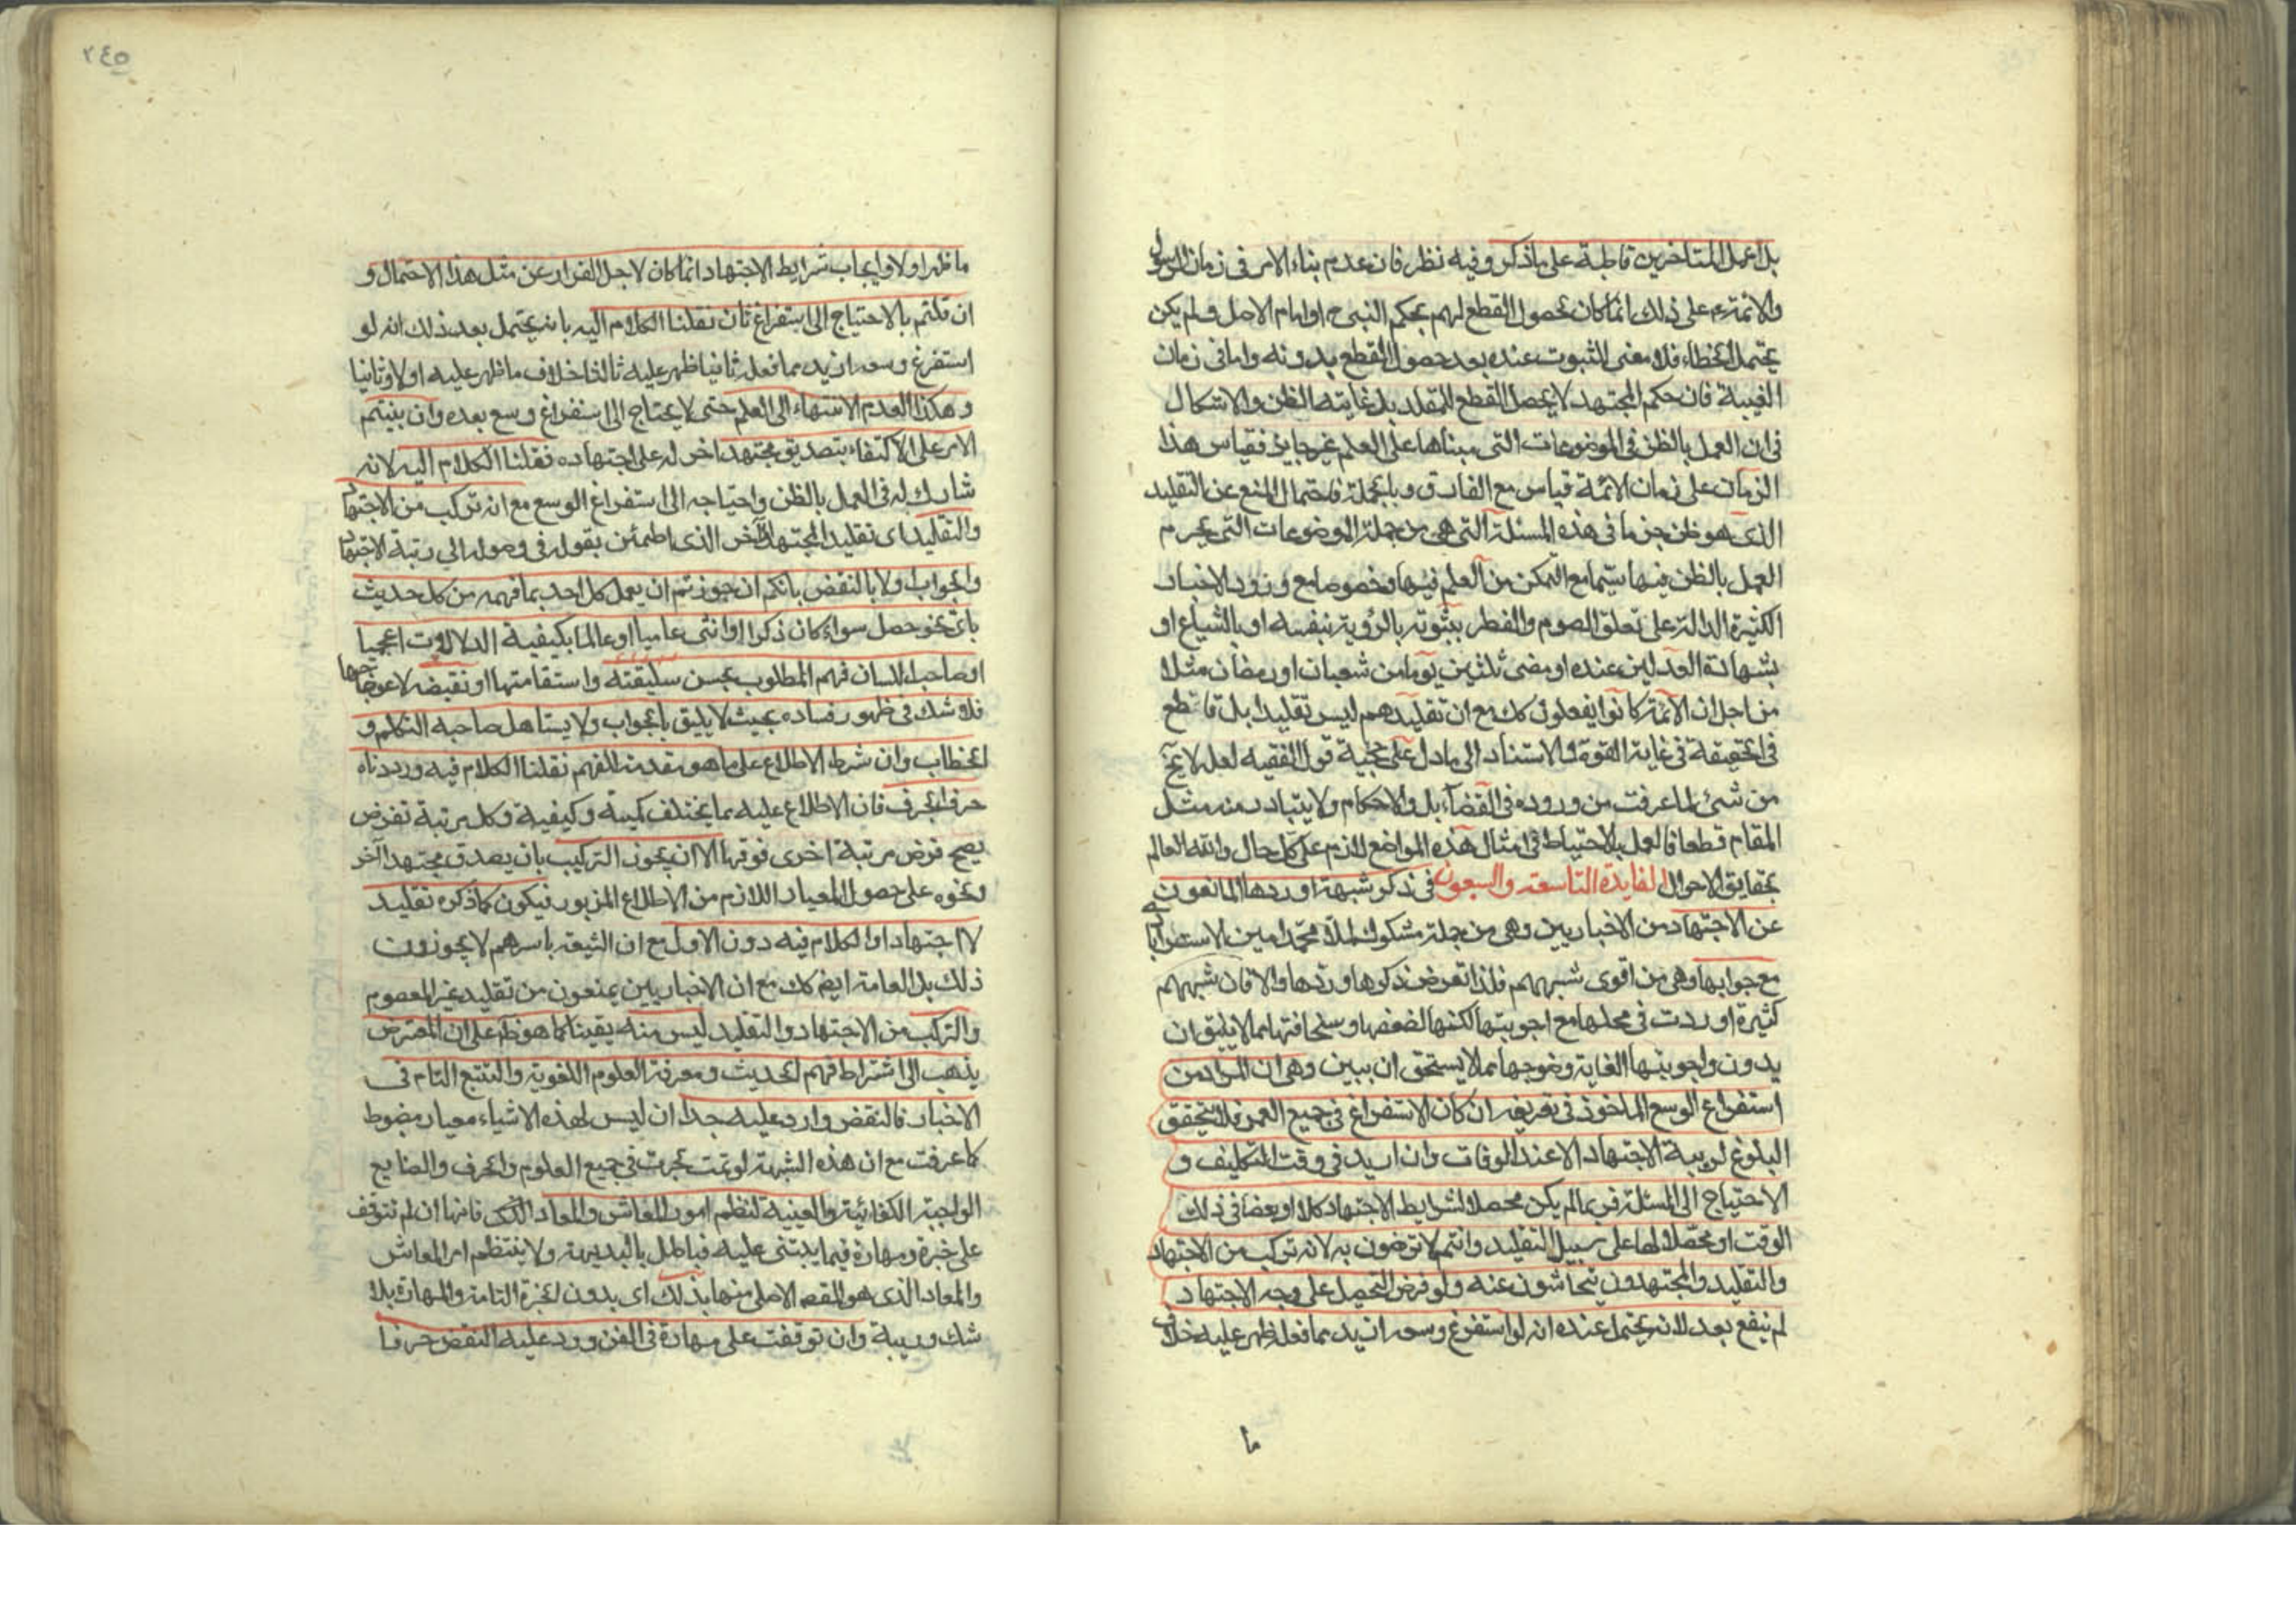 بل عمل المتاخرين قاطبة على ما ذكر وفيه نظر فان عدم بناء الامر فى زمان الرسول
والائمة ع على ذلك انما كان لحصول القطع لهم بحكم النبى ص او امام الاصل ولم يكن
يحتمل الخطاء فلا معنى للثبوت عنده بعد حصول القطع بدونه واما فى زمان
الغيبة فان حكم المجتهد لا يحصل القطع للمقلد بل غايته الظن والاشكال
فى ان العمل بالظن فى الموضوعات التى مبناها على العلم غير جايز فقياس هذا
الزمان على زمان الائمة قياس مع الفارق وبالجملة فاحتمال المنع عن التقليد
الذى هو ظن جزما فى هذه المسئلة التى هى من جملة الموضوعات التى يحرم
العمل بالظن فيها سيما مع التمكن من العلم فيها وخصوصا مع ورود الاخبار
الكثيرة الدالة على تعلق الصوم والفطر بثبوته بالرؤية بنفسه او بالشياع او
بشهادة العدلين عنده او مضى ثلثين يوما من شعبان او رمضان مثلا
من اجل ان الائمة كانوا يفعلون كك مع ان تقليدهم ليس تقليدا بل قاطع
فى الحقيقة فى غاية القوة والاستناد الى ما دل على حجية قول الفقيه لعله لا يخ
من شئ لما عرفت من وروده فى القضاء بل والاحكام ولا يتبادر منه مثل
المقام قطعا فالعمل بالاحتياط فى امثال هذه المواضع لازم على كل حال والله العالم
بحقايق الاحوال الفايدة التاسعة والسبعون فى ذكر شبهة اوردها المانعون
عن الاجتهاد من الاخباريين وهى من جملة شكوك الملا محمد امين الاسترابادى
مع جوابها وهى من اقوى شبههم فلذا تعرض ذكرها وردها والا فان شبههم
كثيرة اوردت فى محلها مع اجوبتها لكنها لضعفها وسخافتها مما لا يليق ان
يدون واجوبتها لغاية وضوحها مما لا يستحق ان يبين وهى ان المراد من
استفراغ الوسع الماخوذ فى تعريفه ان كان الاستفراغ فى جميع العمر فلا يتحقق
البلوغ لرتبة الاجتهاد الا عند الوفات وان اريد فى وقت التكليف و
الاحتياج الى المسئلة فربما لم يكن محصلا لشرايط الاجتهاد كلا او بعضا فى ذلك
الوقت او محصلا لها على سبيل التقليد وانتم لا ترضون به لانه تركب من الاجتهاد
والتقليد والمجتهدون يتحاشون عنه ولو فرض التحصيل على وجه الاجتهاد
لم ينفع بعد لانه يحتمل عنده انه لو استفرغ وسعه ازيد مما فعل ظهر عليه خلاف
ما
٢٤٥
ما ظهر اولا وايجاب شرايط الاجتهاد انما كان لاجل الفرار عن مثل هذا الاحتمال و
ان قلتم بالاحتياج الى استفراغ ثان نقلنا الكلام اليه بانه يحتمل بعد ذلك انه لو
استفرغ وسعه ازيد مما فعل ثانيا ظهر عليه ثالثا خلاف ما ظهر عليه اولا وثانيا
وهكذا لعدم الانتهاء الى العلم حتى لا يحتاج الى استفراغ وسع بعده وان بنيتم
الامر على الاكتفاء بتصديق مجتهد اخر له على اجتهاده نقلنا الكلام اليه لانه
شارك له فى العمل بالظن واحتياجه الى استفراغ الوسع مع انه تركب من الاجتهاد
والتقليد اى تقليد المجتهد الآخر الذى اطمئن بقوله فى وصوله الى رتبة الاجتهاد
والجواب اولا بالنقض بانكم ان جوزتم ان يعمل كل احد بما فهمه من كل حديث
باى نحو حصل سواء كان ذكرا او انثى عاميا او عالما بكيفية الدلالات اعجميا
او صاحب اللسان فهم المطلوب بحسن سليقته واستقامتها او نقيضه لاعوجاجها
فلا شك فى ظهور فساده بحيث لا يليق بالجواب ولا يستاهل صاحبه التكلم و
الخطاب وان شرط الاطلاع على ما هو مقدمة للفهم نقلنا الكلام فيه ورددناه
حرفا بحرف فان الاطلاع عليه مما يختلف كمية وكيفية وكل مرتبة تفرض
يصح فرض مرتبة اخرى فوقها الا ان يجوز التركيب بان يصدق مجتهد آخر
ونحوه على حصول المعيار اللازم من الاطلاع المزبور فيكون كما ذكره تقليد
لا اجتهادا والكلام فيه دون الاول مع ان الشيعة باسرهم لا يجوزون
ذلك بل العامة ايضا كك مع ان الاخباريين يمنعون من تقليد غير المعصوم
والتركب من الاجتهاد والتقليد ليس منه يقينا كما هو ظ على ان المعترض
يذهب الى اشتراط فهم الحديث ومعرفة العلوم اللغوية والتتبع التام فى
الاخبار فالنقض وارد عليه جدا ان ليس لهذه الاشياء معيار مضبوط
كما عرفت مع ان هذه الشبهة لو تمت لجرت فى جميع العلوم والحرف والصنايع
الواجبة الكفائية والعينية لنظم امور المعاش والمعاد الذى فانها ان لم تتوقف
على خبرة ومهارة فيما يبتنى عليه فباطل بالبديهة ولا ينتظم امر المعاش
والمعاد الذى هو المقصد الاصلى منها بذلك اى بدون الخبرة التامة والمهارة بلا
شك وريبة وان توقفت على مهارة فى الفن ورد عليه النقض حرفا